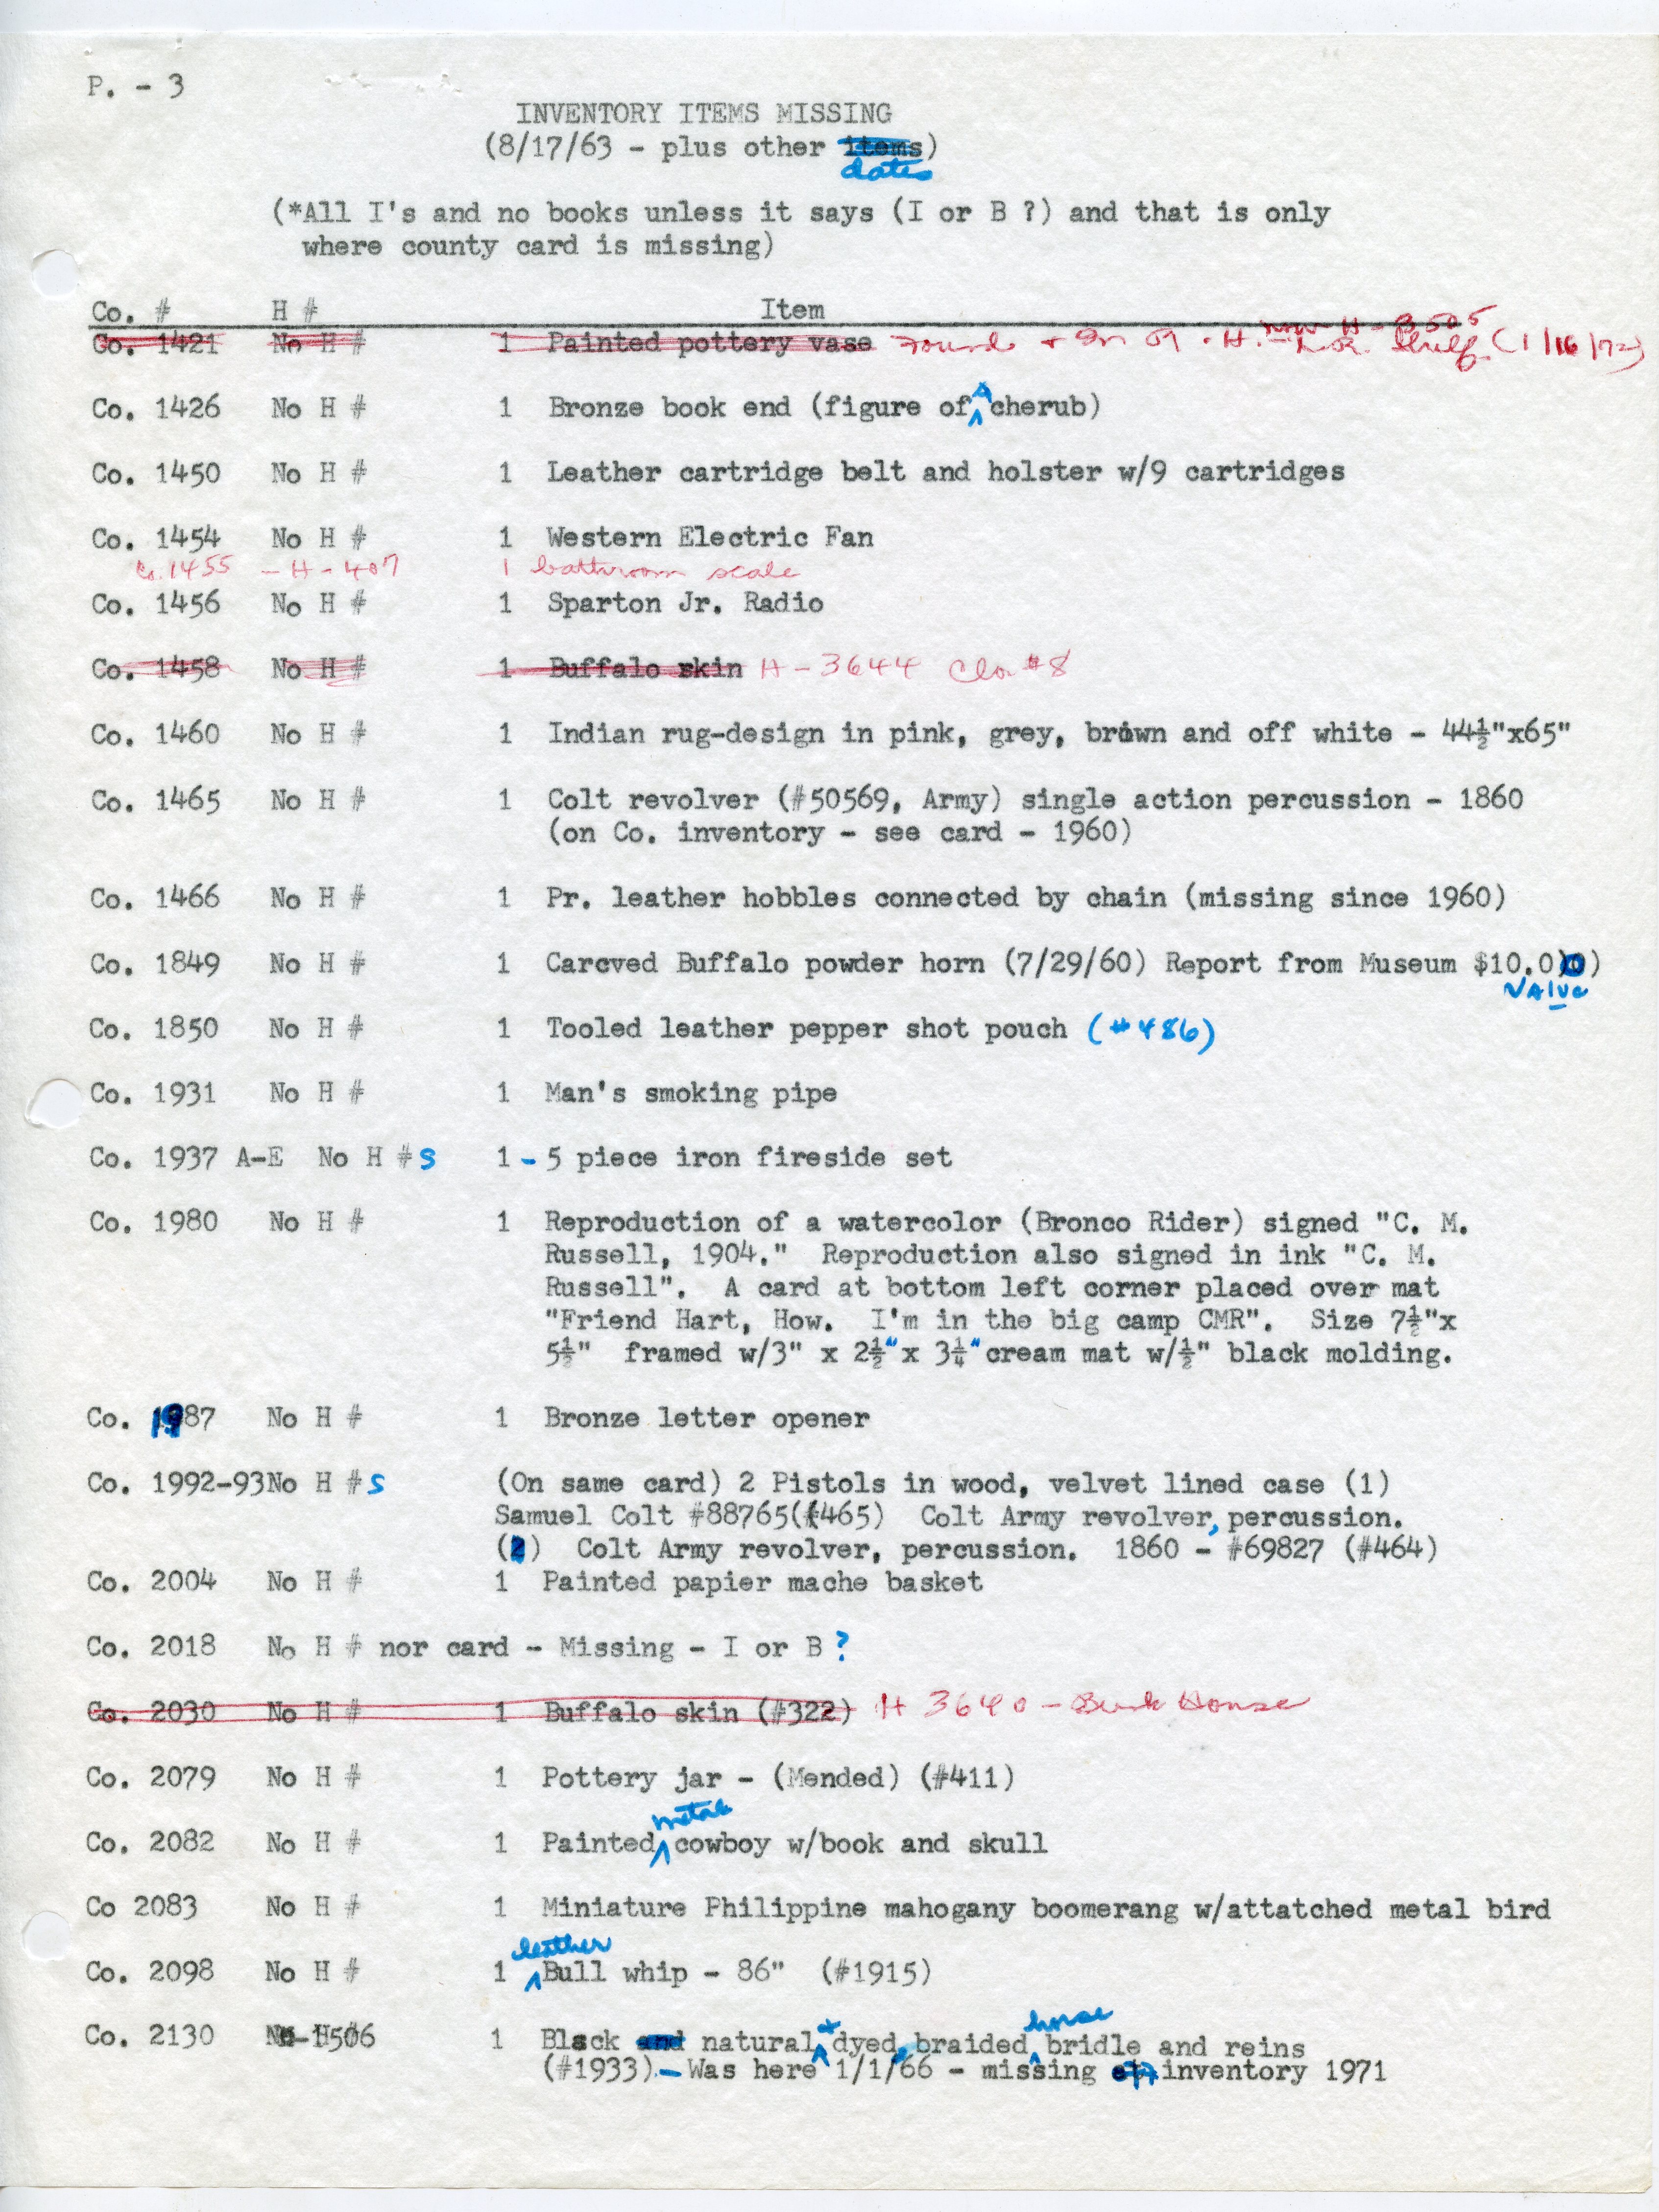 P. - 3
INVENTORY ITEMS MISSING
(8/17/63 - plus other items)
dates
(*All I's and no books unless it says (I or B ?) and that is only
where county card is missing)
Co. # H # Item
now H-3505
Co. 1421 No H # 1 Painted pottery vase Found + In . H. - Shelf (1/16/72)
Co. 1426 No H # 1 Bronze book end (figure of a cherub)
Co. 1450 No H # 1 Leather cartridge belt and holster w/9 cartridges
Co. 1454 No H # 1 Western Electric Fan
Co. 1455 - H - 407 1 bathroom scale
Co. 1456 No H # 1 Sparton Jr. Radio
Co. 1458 No H # 1 Buffalo skin H-3644 Clo. #8
Co. 1460 No H # 1 Indian rug-design in pink, grey, brown and off white - 44½"x65"
Co. 1465 No H # 1 Colt revolver (#50569, Army) single action percussion - 1860
(on Co. inventory - see card - 1960)
Co. 1466 No H # 1 Pr. leather hobbles connected by chain (missing since 1960)
Co. 1849 No H # 1 Carcved Buffalo powder horn (7/29/60) Report from Museum $10.00)
VAlue
Co. 1850 No H # 1 Tooled leather pepper shot pouch (#486)
Co. 1931 No H # 1 Man's smoking pipe
Co. 1937 A-E No H #s 1 - 5 piece iron fireside set
Co. 1980 No H # 1 Reproduction of a watercolor (Bronco Rider) signed "C. M.
Russell, 1904." Reproduction also signed in ink "C. M.
Russell". A card at bottom left corner placed over mat
"Friend Hart, How. I'm in the big camp CMR". Size 7½"x
5½" framed w/3" x 2½" x 3¼" cream mat w/½" black molding.
Co. 1987 No H # 1 Bronze letter opener
Co. 1992-93No H #s (On same card) 2 Pistols in wood, velvet lined case (1)
Samuel Colt #88765(#465) Colt Army revolver, percussion.
(2) Colt Army revolver, percussion. 1860 - #69827 (#464)
Co. 2004 No H # 1 Painted papier mache basket
Co. 2018 No H # nor card - Missing - I or B ?
Co. 2030 No H # 1 Buffalo skin (#322) H 3640 - Bunk House
Co. 2079 No H # 1 Pottery jar - (Mended) (#411)
Co. 2082 No H # 1 Painted metal cowboy w/book and skull
Co 2083 No H # 1 Miniature Philippine mahogany boomerang w/attatched metal bird
Co. 2098 No H # 1 leather Bull whip - 86" (#1915)
Co. 2130 H-1506 1 Black and natural + dyed, braided horse bridle and reins
(#1933) - Was here 1/1/66 - missing inventory 1971